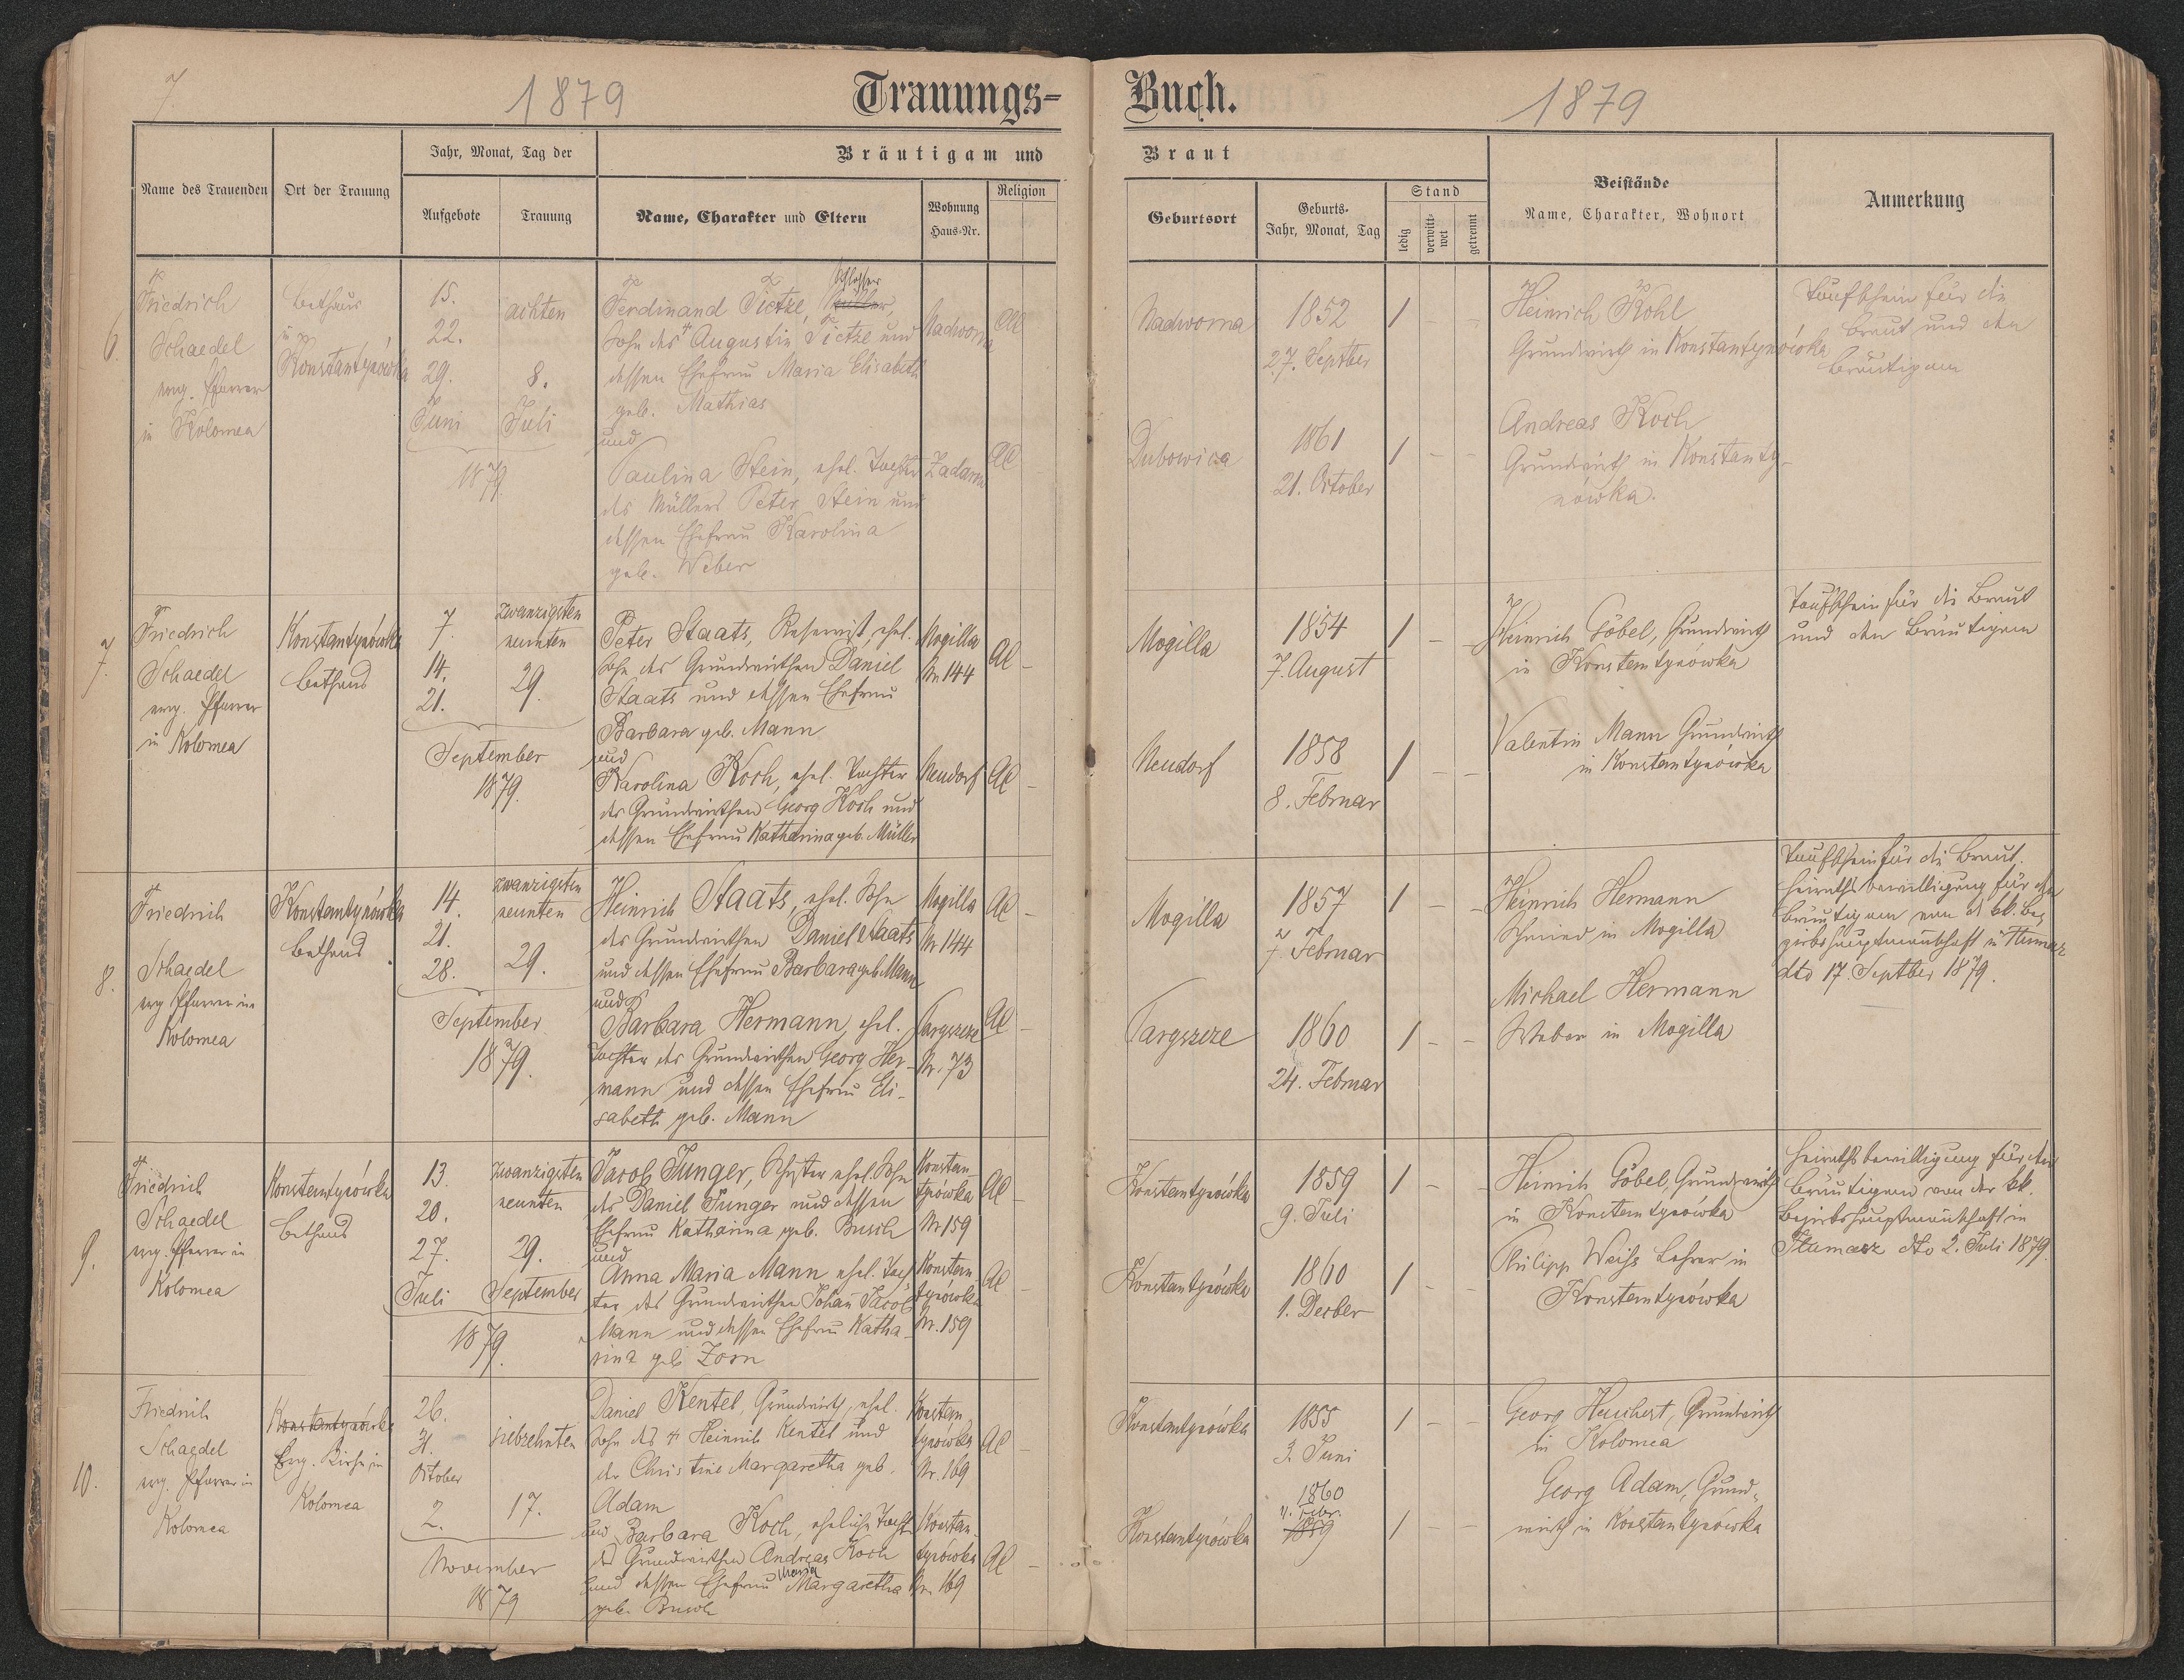 7.
1879
Trauungs-
Buch.
1879
Name des Trauenden
Ort der Trauung
Jahr, Monat, Tag der
Aufgebote
Trauung
Bräutigam und
Name, Charakter und Eltern
Wohnung
Haus-Nr.
Religion
Braut
Geburtsort
Geburts-
Jahr, Monat, Tag
Stand
ledig
verwitt-
wet
getrennt
Beistände
Name, Charakter, Wohnort
Anmerkung
6.
Friedrich
Schaedel
evng. Pfarrer
in Kolomea
Bethaus
in
Konstantynówka
15.
22.
29.
Juni
achten
8.
Juli
1879.
Schlosser
Ferdinand Tietze,
Sohn des † Augustin Tietze und
dessen Ehefrau Maria Elisabeth
geb. Mathias
und
Paulina Stein, ehel. Tochter
des Müllers Peter Stein und
dessen Ehefrau Karolina
geb. Weber
Nadworna
AC
AC
Nadworna
1852
27. Septber
/ - -
Dubowica
1861
21. October
/ - -
Heinrich Kohl
Grundwirth in Konstantynówka
Andreas Koch
Grundwirth in Konstanty-
nówka.
Taufschein für die
Braut und den
Bräutigam
7.
Friedrich
Schaedel
evng. Pfarrer
in Kolomea
Konstantynówka
Bethaus
7.
14.
21.
zwanzigsten
neunten
29.
September
1879.
Peter Staats, Reservist, ehel.
Sohn des Grundwirthen Daniel
Staats und dessen Ehefrau
Barbara geb. Mann
und
Karolina Koch, ehel. Tochter
des Grundwirthen Georg Koch und
dessen Ehefrau Katharina geb. Müller
Mogilla
Nr. 144
AC -
Neudorf
AC -
Mogilla
1854
7. August
/ - -
Neudorf
1858
8. Februar
/ - -
Heinrich Göbel, Grundwirth
in Konstantynówka
Valentin Mann Grundwirth
in Konstantynówka
Taufschein für die Braut
und den Bräutigam
8.
Friedrich
Schaedel
evg. Pfarrer in
Kolomea
Konstantynówka
Bethaus
14.
21.
28.
zwanzigsten
neunten
29.
September
1879.
Heinrich Staats, ehel. Sohn
des Grundwirthen Daniel Staats
und dessen Ehefrau Barbara geb. Mann
und
Barbara Hermann, ehel.
Tochter des Grundwirthen Georg Her-
mann und dessen Ehefrau Eli-
sabeth geb. Mann
Mogilla
Nr. 144
AC -
Targszeze
Nr. 73
AC -
Mogilla
1857
7. Februar
/ - -
Targszeze
1860
24. Februar
/ - -
Heinrich Hermann
Schmied in Mogilla
Michael Hermann
Weber in Mogilla
Taufschein für die Braut.
Heirathsbewilligung für den
Bräutigam von d. kk. Be-
zirkshauptmannschaft in
dto 17 Septber 1879.
9.
Friedrich
Schaedel
evg. Pfarrer in
Kolomea
Konstantynówka
Bethaus
13.
20.
27.
Juli
zwanzigsten
neunten
29.
September
1879.
Jacob Junger, ehel. Sohn
des Daniel Junger und dessen
Ehefrau Katharina geb. Busch
und
Anna Maria Mann ehel. Toch-
ter des Grundwirthen Johan Jacob
Mann und dessen Ehefrau Katha-
rina geb. Zorn
Konstan
tynówka
Nr. 159
AC -
Konstan
tynówka
Nr. 159
AC -
Konstantynówka
1859
9. Juli
/ - -
Konstantynówka
1860
1. Decber
/ - -
Heinrich Göbel, Grundwirth
in Konstantynówka
Philipp Weiss Lehrer in
Konstantynówka
Heirathsbewilligung für den
Bräutigam von der kk.
Bezirkshauptmannschaft in
Tlumacz dto 2. Juli 1879.
10.
Friedrich
Schaedel
evg. Pfarrer in
Kolomea
Konstantynówka
Evg. Kirche in
Kolomea
26.
31.
October
2.
siebzehnten
17.
November
1879
Daniel Kentel, Grundwirth, ehel.
Sohn des † Heinrich Kentel und
der Christine Margaretha geb.
Adam
und Barbara Koch, eheliche Tocht.
des Grundwirthen Andreas Koch
und dessen Ehefrau Maria Margaretha
geb. Busch
Konstan
tynówka
Nr. 169
AC -
Konstan-
tynówka
Nr. 169
AC -
Konstantynówka
1855
3. Juni
/ - -
Konstantynówka
1860
Febr.
1859
/ - -
Georg Heuchert, Grundwirth
in Kolomea
Georg Adam, Grund-
wirth in Konstantynówka